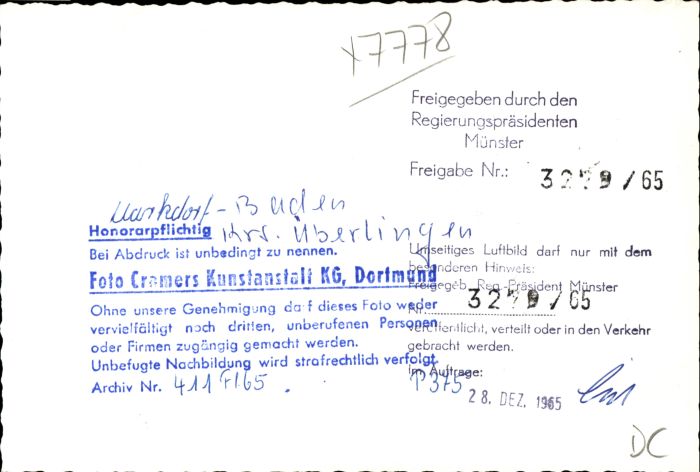 x7778
Freigegeben durch den
Regierungspräsidenten
Münster
Freigabe Nr.: 3279/65
Markdorf-Baden
Krs. Überlingen
Honorarpflichtig
Bei Abdruck ist unbedingt zu nennen.
Foto Cramers Kunstanstalt KG, Dortmund
Ohne unsere Genehmigung darf dieses Foto weder
vervielfältigt noch dritten, unberufenen Personen
oder Firmen zugängig gemacht werden.
Unbefugte Nachbildung wird strafrechtlich verfolgt.
Archiv Nr. 411 F/65.
Umseitiges Luftbild darf nur mit dem
besonderen Hinweis:
Freigegeb. Reg.-Präsident Münster
Nr. 3279/65
veröffentlicht, verteilt oder in den Verkehr
gebracht werden.
Im Auftrage:
P 375
28. DEZ. 1965
DC